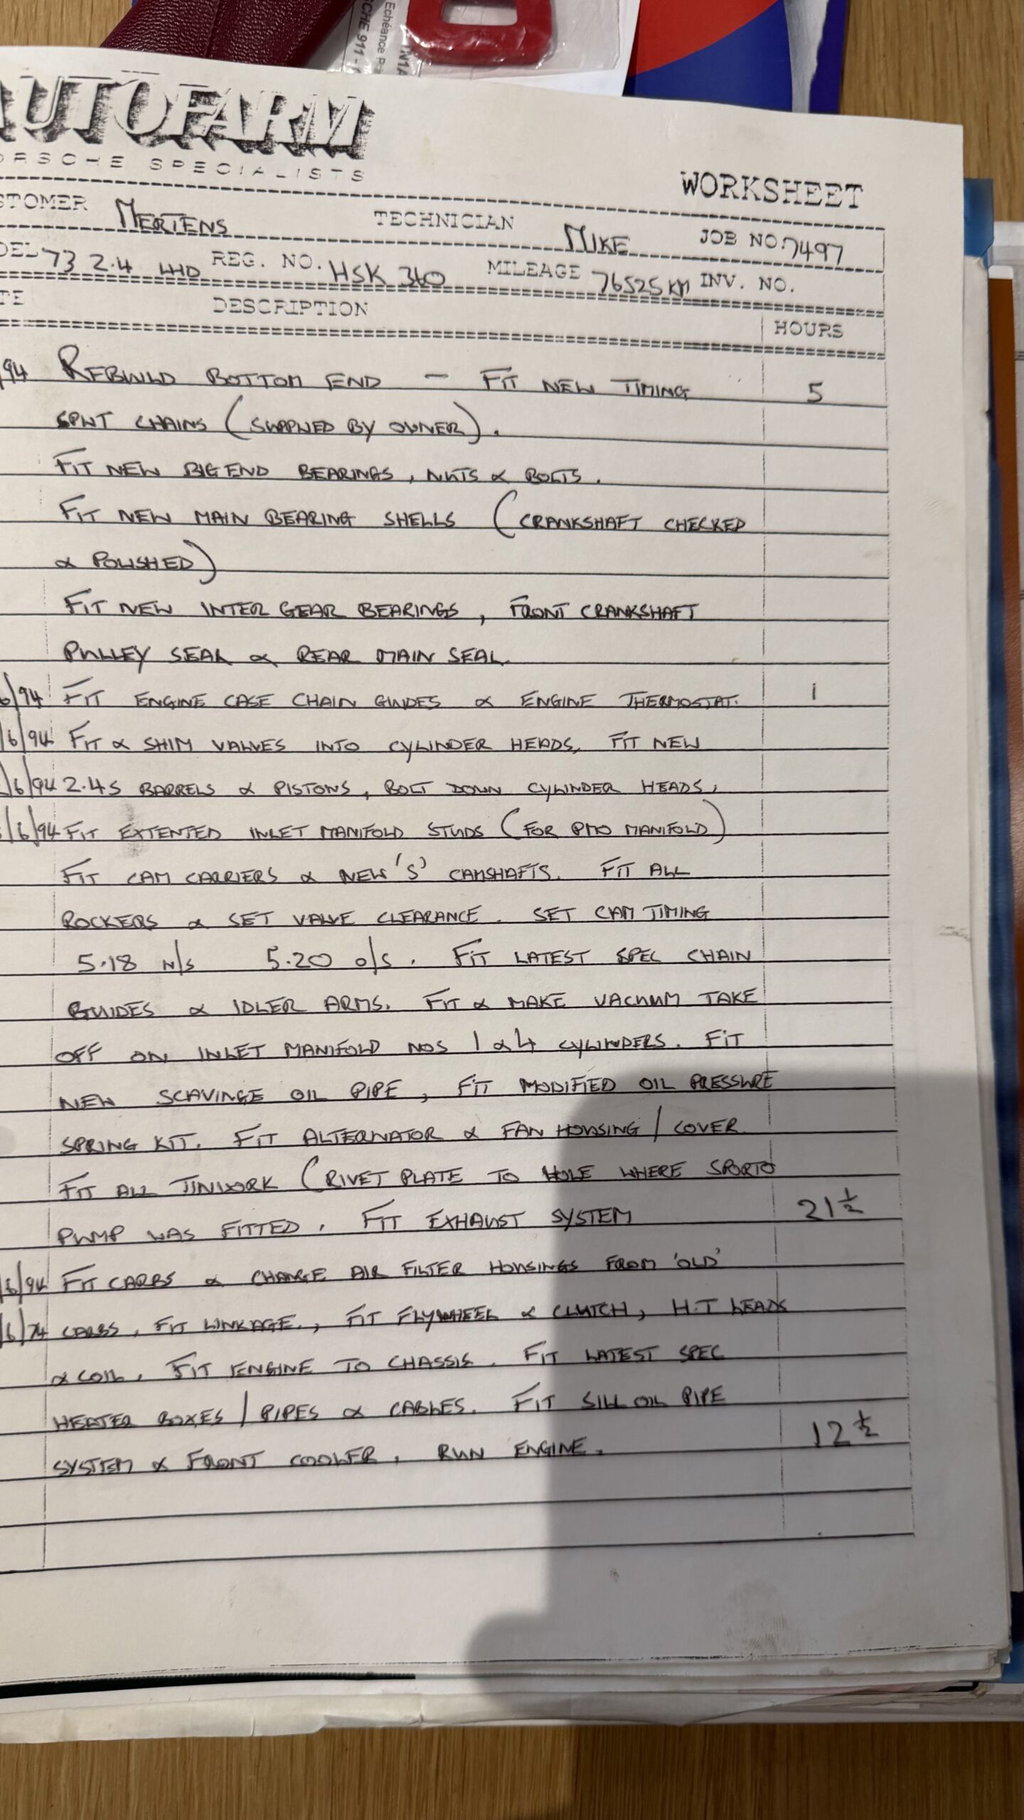 AUTOFARM
ORSCHE SPECIALISTS
WORKSHEET
STOMER MERTENS TECHNICIAN MIKE JOB NO. 7497
DEL 73 2.4 LHD REG. NO. HSK 340 MILEAGE 76525 KM INV. NO.
TE DESCRIPTION HOURS
/94 REBUILD BOTTOM END — FIT NEW TIMING 5
SPLIT CHAINS (SUPPLIED BY OWNER).
FIT NEW BIG END BEARINGS, NUTS & BOLTS.
FIT NEW MAIN BEARING SHELLS (CRANKSHAFT CHECKED
& POLISHED)
FIT NEW INTER GEAR BEARINGS, FRONT CRANKSHAFT
PULLEY SEAL & REAR MAIN SEAL.
6/94 FIT ENGINE CASE CHAIN GUIDES & ENGINE THERMOSTAT. 1
/6/94 FIT & SHIM VALVES INTO CYLINDER HEADS, FIT NEW
/6/94 2.4S BARRELS & PISTONS, BOLT DOWN CYLINDER HEADS,
/6/94 FIT EXTENTED INLET MANIFOLD STUDS (FOR PMO MANIFOLD)
FIT CAM CARRIERS & NEW 'S' CAMSHAFTS. FIT ALL
ROCKERS & SET VALVE CLEARANCE. SET CAM TIMING
5.18 N/S 5.20 O/S. FIT LATEST SPEC CHAIN
GUIDES & IDLER ARMS. FIT & MAKE VACUUM TAKE
OFF ON INLET MANIFOLD NOS 1 & 4 CYLINDERS. FIT
NEW SCAVINGE OIL PIPE, FIT MODIFIED OIL PRESSURE
SPRING KIT. FIT ALTERNATOR & FAN HOUSING / COVER
FIT ALL TINWORK (RIVET PLATE TO HOLE WHERE SPORTO
PUMP WAS FITTED. FIT EXHAUST SYSTEM 21 ½
/6/94 FIT CARBS & CHANGE AIR FILTER HOUSINGS FROM 'OLD'
/6/94 CARBS, FIT LINKAGE., FIT FLYWHEEL & CLUTCH, H.T LEADS
& COIL. FIT ENGINE TO CHASSIS. FIT LATEST SPEC
HEATER BOXES / PIPES & CABLES. FIT SILL OIL PIPE
SYSTEM & FRONT COOLER. RUN ENGINE. 12 ½